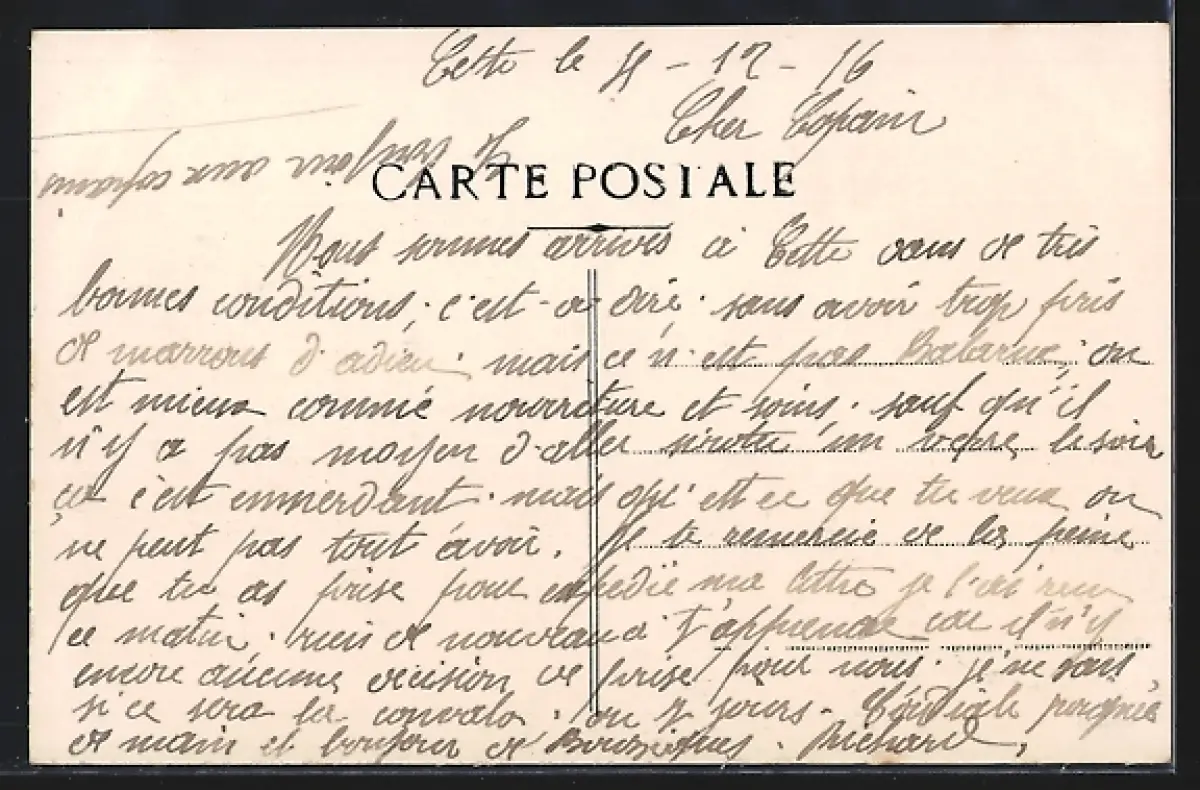 Cette le 4-12-16
Cher Copain
CARTE POSTALE
Nous sommes arrivés à Cette dans de très
bonnes conditions, c'est-a dire sans avoir trop pris
de marrons d'adieu, mais ce n'est pas Balaruc, on
est mieux comme nourriture et soins. sauf qu'il
n'y a pas moyen d'aller un verre le soir
ça c'est emmerdant. mais qu'est ce que tu veux on
ne peut pas tout avoir. Je te remercie de la peine
que tu as prise pour expédié ma lettre je l'ai reçu
ce matin. rien de nouveau a t'apprendre car il n'y
encore aucune décision de prise pour nous. je ne sais
si ce sera la convalo. ou 7 jours. Cordiale poignée
de main et bonjour de Bouzigues. Richard
le bonjour aux copains